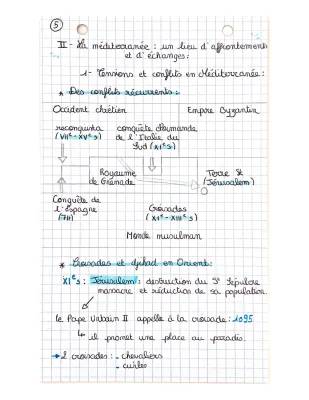 5
II - La méditerranée : un lieu d'affrontements
et d'échanges :
1 - Tensions et conflits en Méditerranée :
* Des conflits récurrents :
Occident chrétien Empire Byzantin
reconquista conquête normande
(VIIe - XVe s) de l'Italie du
Sud (XIe s)
Royaume Terre St
de Grenade (Jérusalem)
Conquête de
l'Espagne Croisades
(711) (XIe - XIIIe s)
Monde musulman
* Croisades et djihad en Orient :
XIe s : Jérusalem : destruction du St Sépulcre
massacre et réduction de sa population.
le Pape Urbain II appelle à la croisade : 1095
il promet une place au paradis.
→ 2 croisades : - chevaliers
- civiles